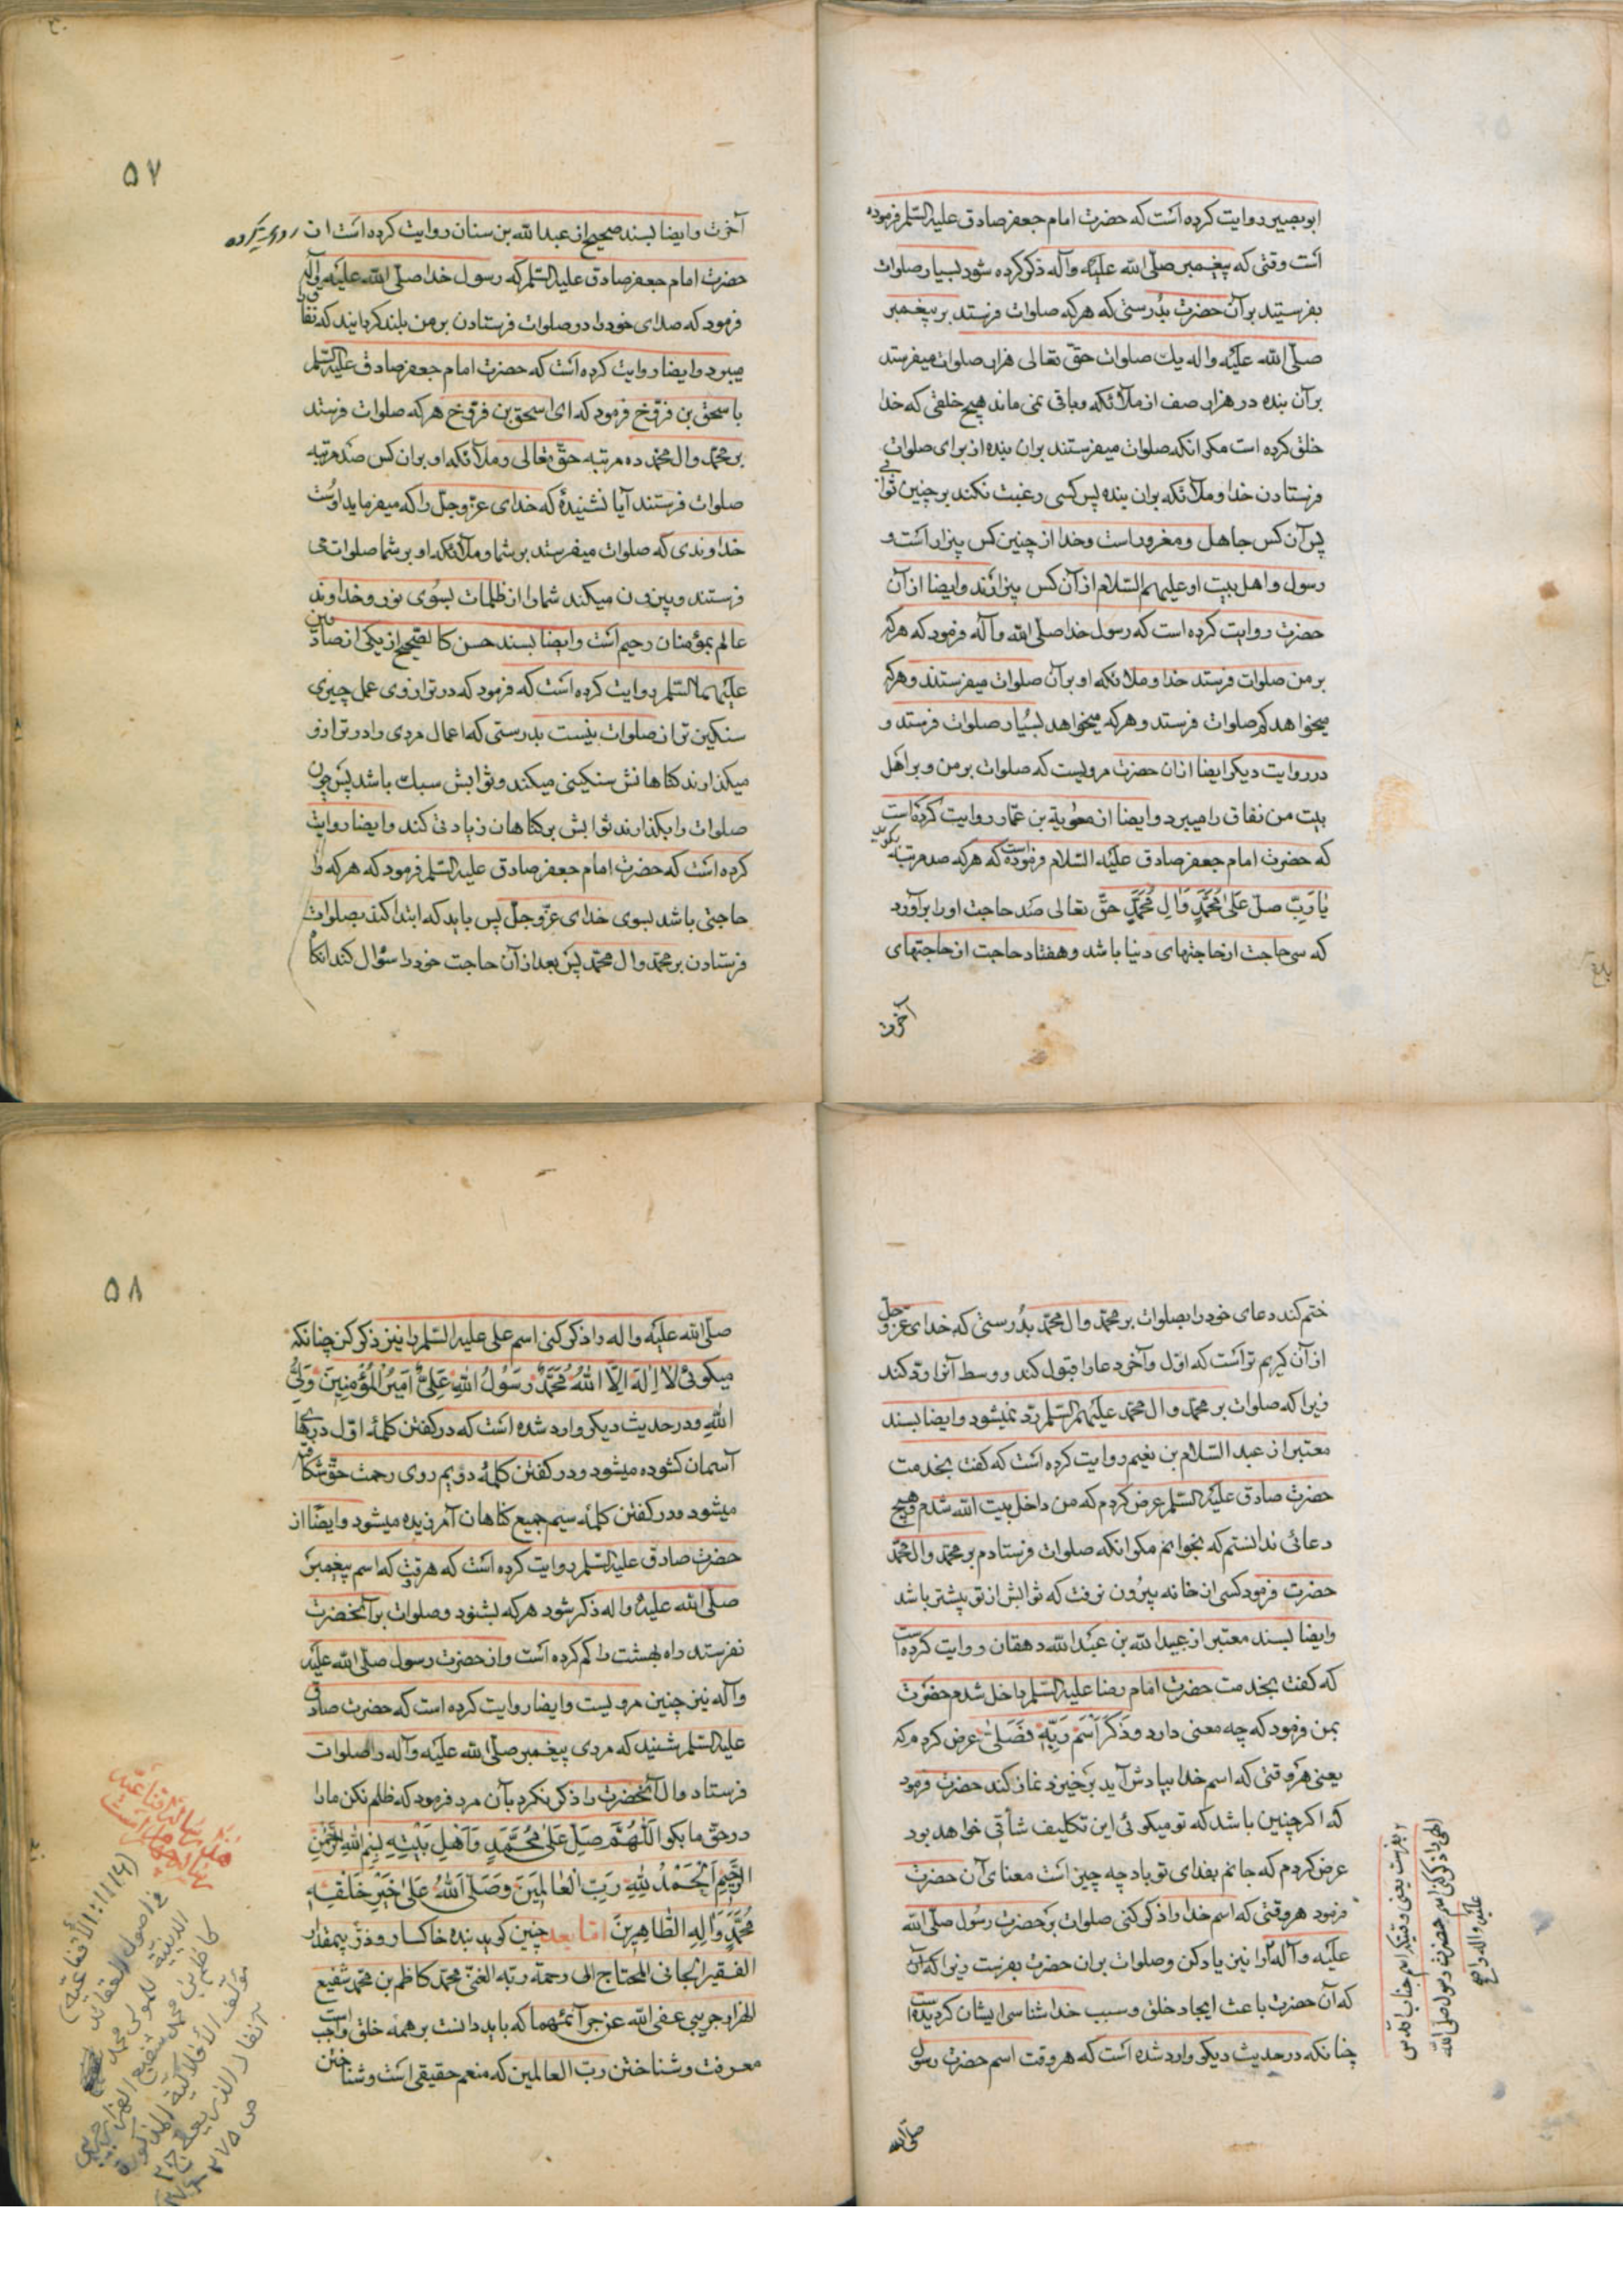 ابوبصیر روایت کرده است که حضرت امام جعفر صادق علیه السلم فرموده
است وقتی که پیغمبر صلّی الله علیه وآله ذکر کرده شود بسیار صلوات
بفرستید بر آن حضرت بدُرستی که هرکه صلوات فرستد بر پیغمبر
صلّی الله علیه واله یك صلوات حقّ تعالی هزار صلوات میفرستد
بر آن بنده در هزار صف از ملائکه وباقی نمی ماند هیچ خلقی که خدا
خلق کرده است مکر انکه صلوات میفرستند بران بنده از برای صلوات
فرستادن خدا وملائکه بران بنده پس کسی رغبت نکند بر چنین ثوابی
پس آن کس جاهل ومغرور است وخدا از چنین کس بیزار است و
رسول واهل بیت او علیهم السّلام از آن کس بیزارند وایضا از آن
حضرت روایت کرده است که رسول خدا صلّی الله وآله فرمود که هرکه
بر من صلوات فرستد خدا وملائکه او بر آن صلوات میفرستند وهرکه
میخواهد کم صلوات فرستد وهرکه میخواهد بسیار صلوات فرستد و
در روایت دیکر ایضا ازان حضرت مرویست که صلوات بر من وبر اهل
بیت من نفاق را میبرد وایضا از معویة بن عمّار روایت کرده است
که حضرت امام جعفر صادق علیه السّلام فرموده است که هرکه صد مرتبه بکوید
یٰا رَبِّ صلّ عَلیٰ مُحَمَّدٍ وَاٰلِ مُحَمَّدٍ حقّ تعالی صَد حاجت او را برآورد
که سی حاجت از حاجتهای دنیا باشد وهفتاد حاجت از حاجتهای
آخرت
۵۷
آخرت وایضا بسند صحیح از عبدالله بن سنان روایت کرده است از
حضرت امام جعفر صادق علیه السلم که رسول خدا صلّی الله علیه وآله
فرمود که صدای خود را در صلوات فرستادن بر من بلند کردانید که نفاق
میبرد وایضا روایت کرده است که حضرت امام جعفر صادق علیه السلم
باسحق بن فرّوخ فرمود که ای اسحق بن فرّوخ هرکه صلوات فرستد
بر محمّد وال محمّد ده مرتبه حقّ تعالی وملائکه او بران کس صَد مرتبه
صلوات فرستند آیا نشنیدهٔ که خدای عزّوجلّ را که میفرماید اوست
خداوندی که صلوات میفرستد بر شما وملائکه او بر شما صلوات می
فرستند وبیرون میکند شما را از ظلمات بسُوی نور وخداوند
عالم بمؤمنان رحیم است وایضا بسند حسن کالصّحیح از یکی از صادقین
علیهما السّلم روایت کرده است که فرمود که در ترازوی عمل چیزی
سنکین تر از صلوات نیست بدرستی که اعمال مردی را در ترازو
میکذارند کناهانش سنکینی میکند وثوابش سبك باشد پس چون
صلوات را بکذارند ثوابش بر کناهان زیادتی کند وایضا روایت
کرده است که حضرت امام جعفر صادق علیه السّلم فرمود که هرکه را
حاجتی باشد بسوی خدای عزّوجلّ پس باید که ابتدا کند بصلوات
فرستادن بر محمّد وال محمّد پس بعد از آن حاجت خود را سؤال کند انکاه
ختم کند دعای خود را بصلوات بر محمّد وال محمّد بدُرستی که خدای عزّوجلّ
از آن کریم تر است که اوّل وآخر دعا را قبول کند ووسط آنرا ردّ کند
زیرا که صلوات بر محمّد وال محمّد علیهم السّلم ردّ نمیشود وایضا بسند
معتبر از عبد السّلام بن نعیم روایت کرده است که کفت بخدمت
حضرت صادق علیه السّلم عرض کردم که من داخل بیت الله شدم وهیچ
دعائی ندانستم که بخوانم مکر انکه صلوات فرستادم بر محمّد وال محمّد
حضرت فرمود کسی از خانه بیرُون نرفت که ثوابش از تو بیشتر باشد
وایضا بسند معتبر از عبیدالله بن عبدالله دهقان روایت کرده است
که کفت بخدمت حضرت امام رضا علیه السّلم داخل شدم حضرت
بمن فرمود که چه معنی دارد وَذَکَرَ اسْمَ رَبِّهِ فَصَلّیٰ عرض کردم که
یعنی هر وقتی که اسم خدا بیادش آید برخیزد نماز کند حضرت فرمود
که اکر چنین باشد که تو میکوئی این تکلیف شاقّی خواهد بود
عرض کردم که جانم بفدای تو باد چه چیز است معنای آن حضرت
فرمود هر وقتی که اسم خدا را ذکر کنی صلوات بر حضرت رسُول صلّی الله
علیه وآله را نیز یاد کن وصلوات بران حضرت بفرست زیرا که آن
که آن حضرت باعث ایجاد خلق وسبب خداشناسی ایشان کردیده است
چنانکه در حدیث دیکر وارد شده است که هر وقت اسم حضرت رسول
صلّی الله
۵۸
صلّی الله علیه واله را ذکر کنی اسم علی علیه السّلم را نیز ذکر کن چنانکه
میکوئی لاٰ اِلٰهَ اِلَّا اللهُ مُحَمَّدٌ رَسُولُ اللهِ عَلِیٌّ اَمیرُ الْمُؤْمِنینَ وَلِیُّ
اللهِ ودر حدیث دیکر وارد شده است که در کفتن کلمهٔ اوّل درهای
آسمان کشوده میشود ودر کفتن کلمهٔ دویم روی رحمت حقّ شکافته
میشود ودر کفتن کلمهٔ سیّم جمیع کناهان آمرزیده میشود وایضًا از
حضرت صادق علیه السّلم روایت کرده است که هر وقت که اسم پیغمبر
صلّی الله علیه واله ذکر شود هرکه بشنود وصلوات بر آنحضرت
نفرستد راه بهشت را کم کرده است واز حضرت رسول صلّی الله علیه
وآله نیز چنین مرویست وایضا روایت کرده است که حضرت صادق
علیه السّلم شنید که مردی پیغمبر صلّی الله علیه وآله را صلوات
فرستاد وال آنحضرت را ذکر نکرد بآن مرد فرمود که ظلم نکن ما را
در حقّ ما بکو اَللّٰهُمَّ صَلِّ عَلیٰ مُحَمَّدٍ وَاَهْلِ بَیْتِهِ بِسْمِ اللهِ الرَّحْمٰنِ
الرَّحیمِ اَلْحَمْدُ لِلّٰهِ رَبِّ الْعٰالَمینَ وَصَلَّی اللهُ عَلیٰ خَیْرِ خَلْقِهِ
مُحَمَّدٍ وَاٰلِهِ الطّٰاهِرینَ امّا بعد چنین کوید بنده خاکسار وذرّه بیمقدار
الفقیر الجانی المحتاج الی رحمة ربّه الغنیّ محمّد کاظم بن محمّد شفیع
الهزارجریبی عفی الله عن جرائمهما که باید دانست بر همه خلق واجب است
معرفت وشناختن ربّ العالمین که منعم حقیقی است وشناختن
فی اصول العقائد
الدینیّة للمولی محمد
کاظم بن محمد شفیع الهزارجریبی